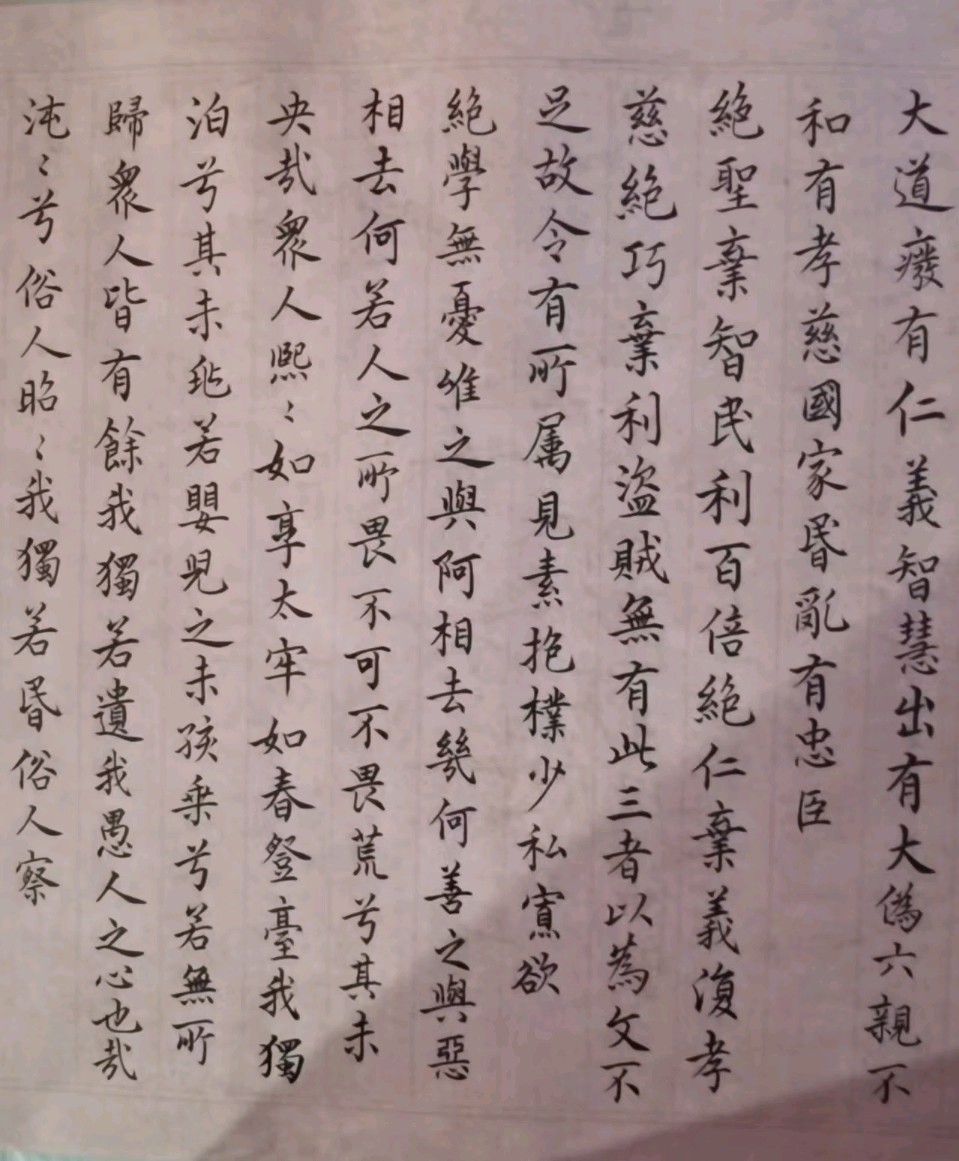 大道癈有仁義智慧出有大偽六親不
和有孝慈國家昬亂有忠臣
絕聖棄智民利百倍絕仁棄義復孝
慈絕巧棄利盜賊無有此三者以為文不
足故令有所屬見素抱樸少私寡欲
絕學無憂唯之與阿相去幾何善之與惡
相去何若人之所畏不可不畏荒兮其未
央哉衆人熙〻如享太牢如春登臺我獨
泊兮其未兆若嬰兒之未孩乘兮若無所
歸衆人皆有餘我獨若遺我愚人之心也哉
沌〻兮俗人昭〻我獨若昬俗人察